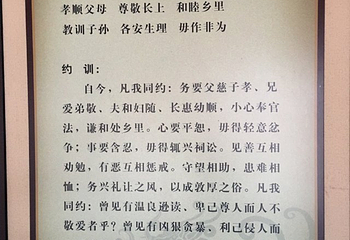 孝顺父母　尊敬长上　和睦乡里
教训子孙　各安生理　毋作非为
约　训：
自今，凡我同约：务要父慈子孝、兄
爱弟敬、夫和妇随、长惠幼顺，小心奉官
法，谦和处乡里。心要平恕，毋得轻意忿
争；事要含忍，毋得辄兴祠讼。见善互相
劝勉，有恶互相惩戒。守望相助，患难相
恤；务兴礼让之风，以成敦厚之俗。凡我
同约：曾见有温良逊读、卑己尊人而人不
敬爱者乎？曾见有凶狠贪暴、利己侵人而